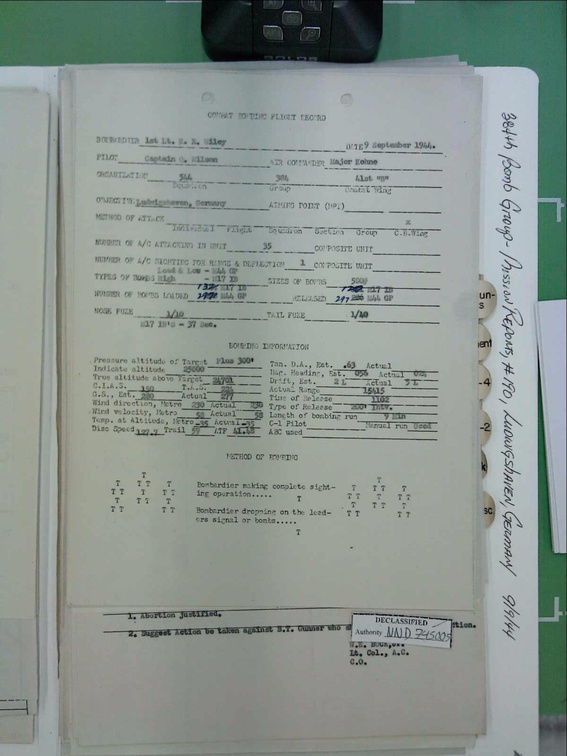 COMBAT BOMBING FLIGHT RECORD
BOMBARDIER 1st Lt. R. B. Wiley DATE 9 September 1944.
PILOT Captain G. Wilson AIR COMMANDER Major Kohne
ORGANIZATION 544 384 41st "B"
Squadron Group Combat Wing
OBJECTIVE Ludwigshaven, Germany AIMING POINT (MPI)
METHOD OF ATTACK x
Individual Flight Squadron Section Group C.B.Wing
NUMBER OF A/C ATTACKING IN UNIT 35 COMPOSITE UNIT
NUMBER OF A/C SIGHTING FOR RANGE & DEFLECTION 1 COMPOSITE UNIT
Lead & Low - M44 GP
TYPES OF BOMBS High - M17 IB SIZES OF BOMBS 500#
M17 IB M17 IB
NUMBER OF BOMBS LOADED M44 GP RELEASED 297 M44 GP
NOSE FUZE 1/10 TAIL FUZE 1/40
M17 IB's - 37 Sec.
BOMBING INFORMATION
Pressure altitude of Target Plus 300'
Indicate altitude 25000
True altitude above Target
C.I.A.S. 150 T.A.S.
G.S., Est. 280 Actual 277
Wind direction, Metro 230 Actual 230
Wind velocity, Metro 58 Actual 58
Temp. at Altitude, Metro -35 Actual -35
Disc Speed Trail 59 ATF
Tan. D.A., Est. .63 Actual
Mag. Heading, Est. 056 Actual
Drift, Est. 2 L Actual 3 L
Actual Range 15415
Time of Release 1102
Type of Release 200' Intv.
Length of bombing run 9 Min
C-1 Pilot Manual run Used
ABC used
METHOD OF BOMBING
T T
T T T T T T
T T T T Bombardier making complete sight- T T T T
T T T ing operation..... T T T T
T T T T Bombardier dropping on the lead- T T T T
ers signal or bombs.....
T
1. Abortion justified.
2. Suggest Action be taken against B.T. Gunner who
DECLASSIFIED
Authority NND 745005
Lt. Col., A.C.
C.O.
384th Bomb Group - Mission Reports, #190, Ludwigshaven, Germany 9/9/44
un-
s
ent
-4
-2
k
sc